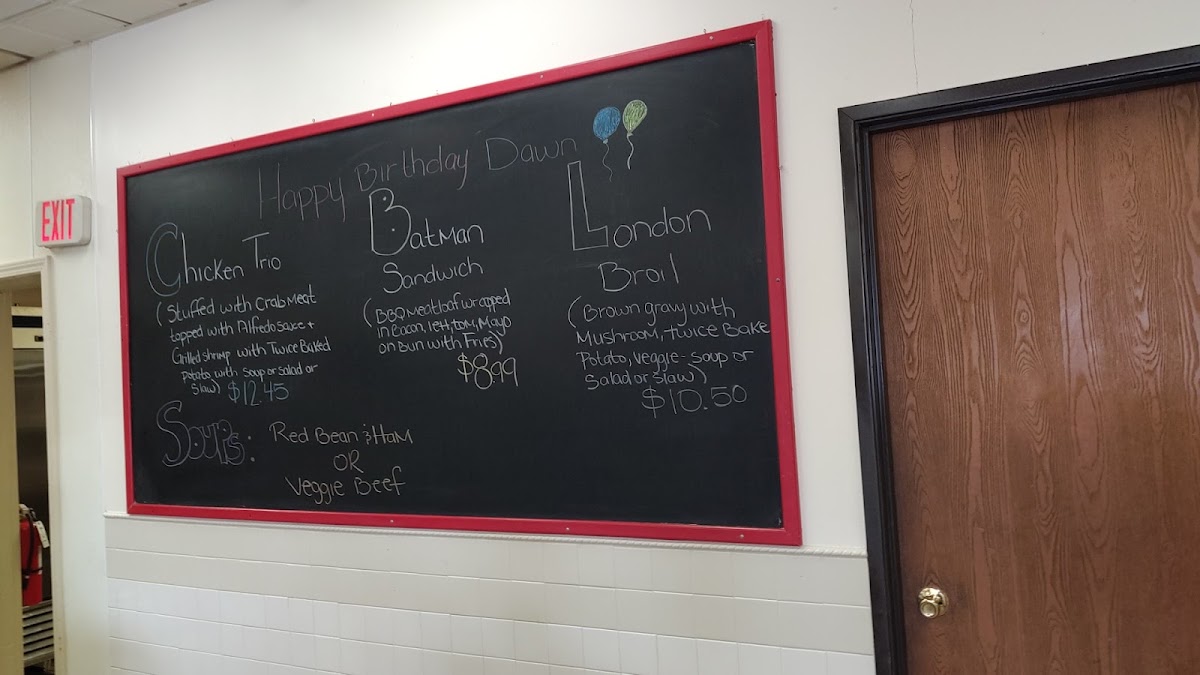 EXIT
Happy Birthday Dawn
Chicken Trio
(Stuffed with Crab Meat
topped with Alfredo sauce +
Grilled shrimp with Twice Baked
potato with soup or salad or
slaw) $12.45
Batman
Sandwich
(BBQ meatloaf wrapped
in Bacon, lett, tom, Mayo
on Bun with Fries)
$8.99
London
Broil
(Brown gravy with
Mushroom, Twice Bake
Potato, veggie - soup or
salad or slaw)
$10.50
Soups:
Red Bean & Ham
OR
Veggie Beef